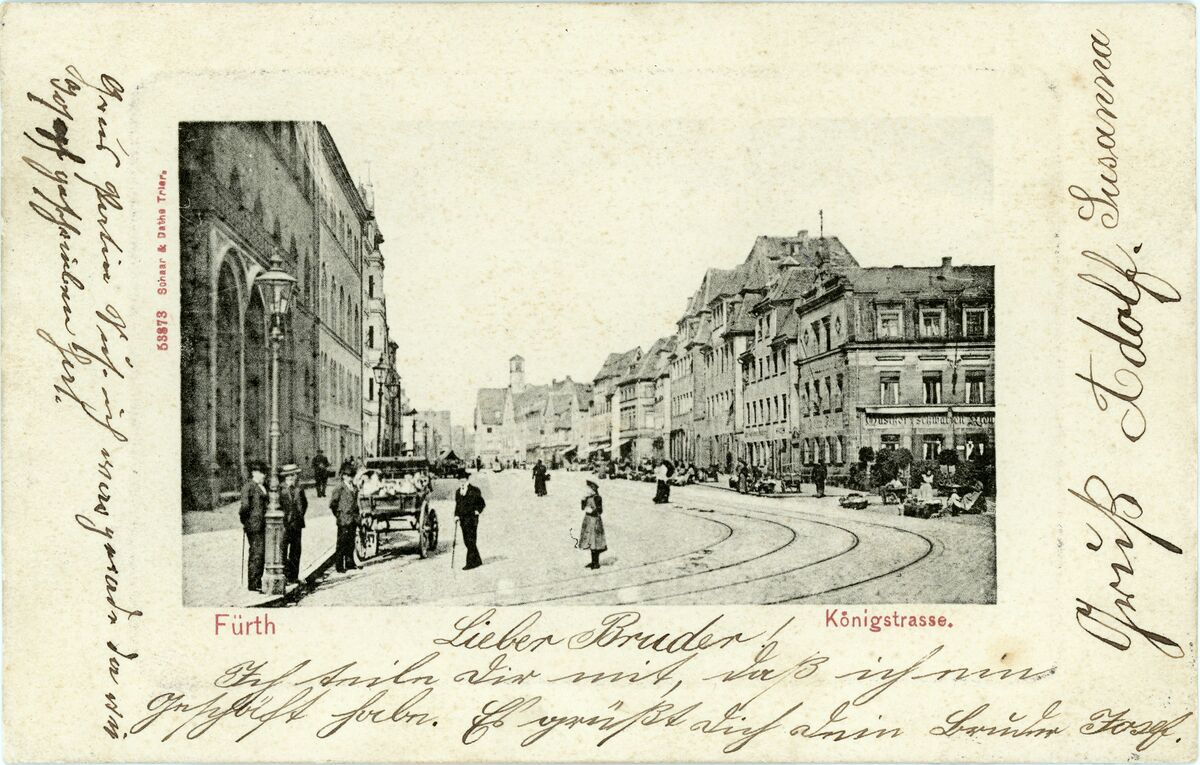 53873 Schaar & Dathe Trier.
Gasthof z. schwarzen Kreuz
Fürth
Königstrasse.
Lieber Bruder!
Ich teile Dir mit, daß ich ein
Geschäft habe. Es grüßt Dich Dein Bruder Josef.
Gruß Adolf. Susanna
Gruß ich war gerade da wie
Josef geschrieben hat.